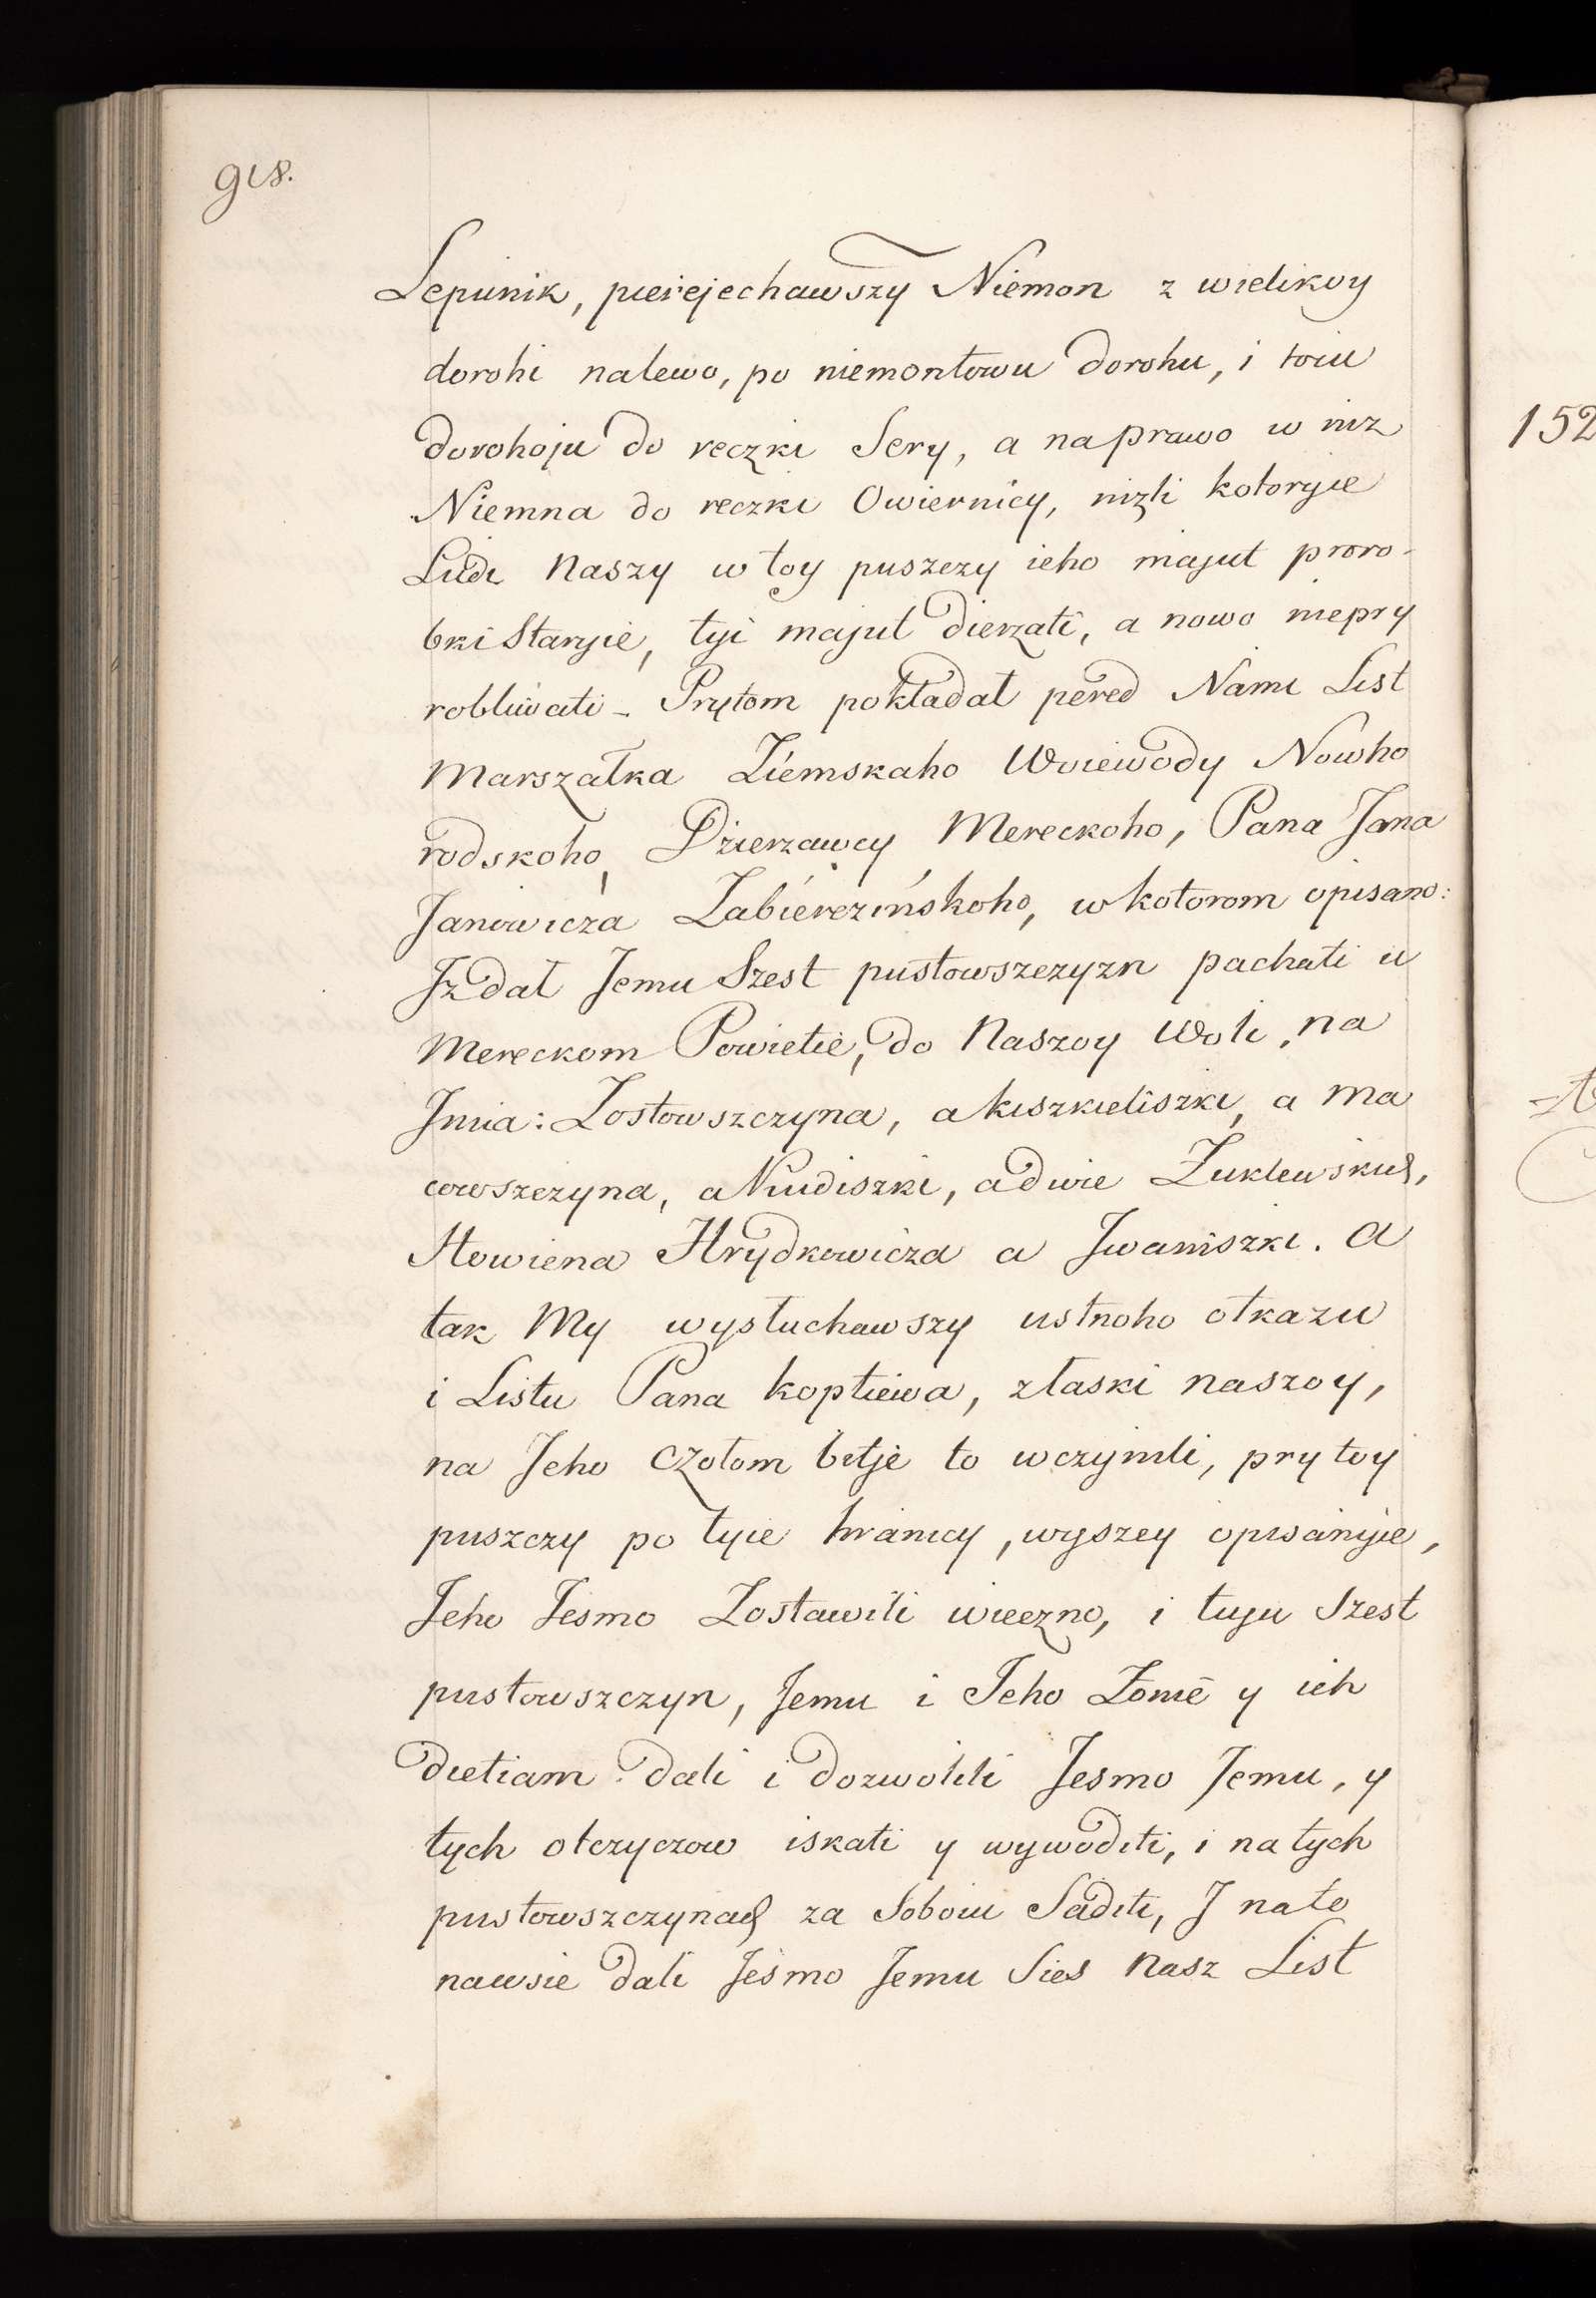 918.
Lepunik, pierejechawszy Niemon z wielikoy
dorohi nalewo, po niemontowu dorohu, i toiu
dorohoju do reczki Sery, a naprawo w niz
Niemna do reczki Owiernicy, nizli kotoryie
Ludi Naszy w toy puszczy ieho majut proro-
bki Staryie, tyi majut dierzati, a nowo niepry
robliwati - Prytom pokładał pered Nami List
Marszałka Ziemskaho Woiewody Nowho
rodskoho, Dzierzawcy Mereckoho, Pana Jana
Janowicza Zabierezińskoho, w kotorom opisano:
Iz dał Jemu Szest pustowszczyzn pachati u
Mereckom Powietie, do Naszoy Woli, na
Jmia: Zostowszczyna, a kiszkieliszki, a Ma
cowszczyna, a Nudiszki, a dwie Żuklewskich,
Hrydkowicza a Jwaniszki. A
tak My wysłuchawszy ustnoho otkazu
i Listu Pana Koptiewa, z łaski naszoy,
na Jeho czołom bitje to wczynili, pry toy
puszczy po tyie hranicy, wyszey opisanyie,
Jeho Jesmo Zostawili wieczno, i tuju Szest
pustowszczyn, Jemu i Jeho Żonie y ich
dietiam dali i dozwolili Jesmo Jemu, y
tych otczyczow iskati y wywoditi, i na tych
pustowszczynach za Soboiu Saditi, J na to
nawsie dali Jesmo Jemu Sies Nasz List
152